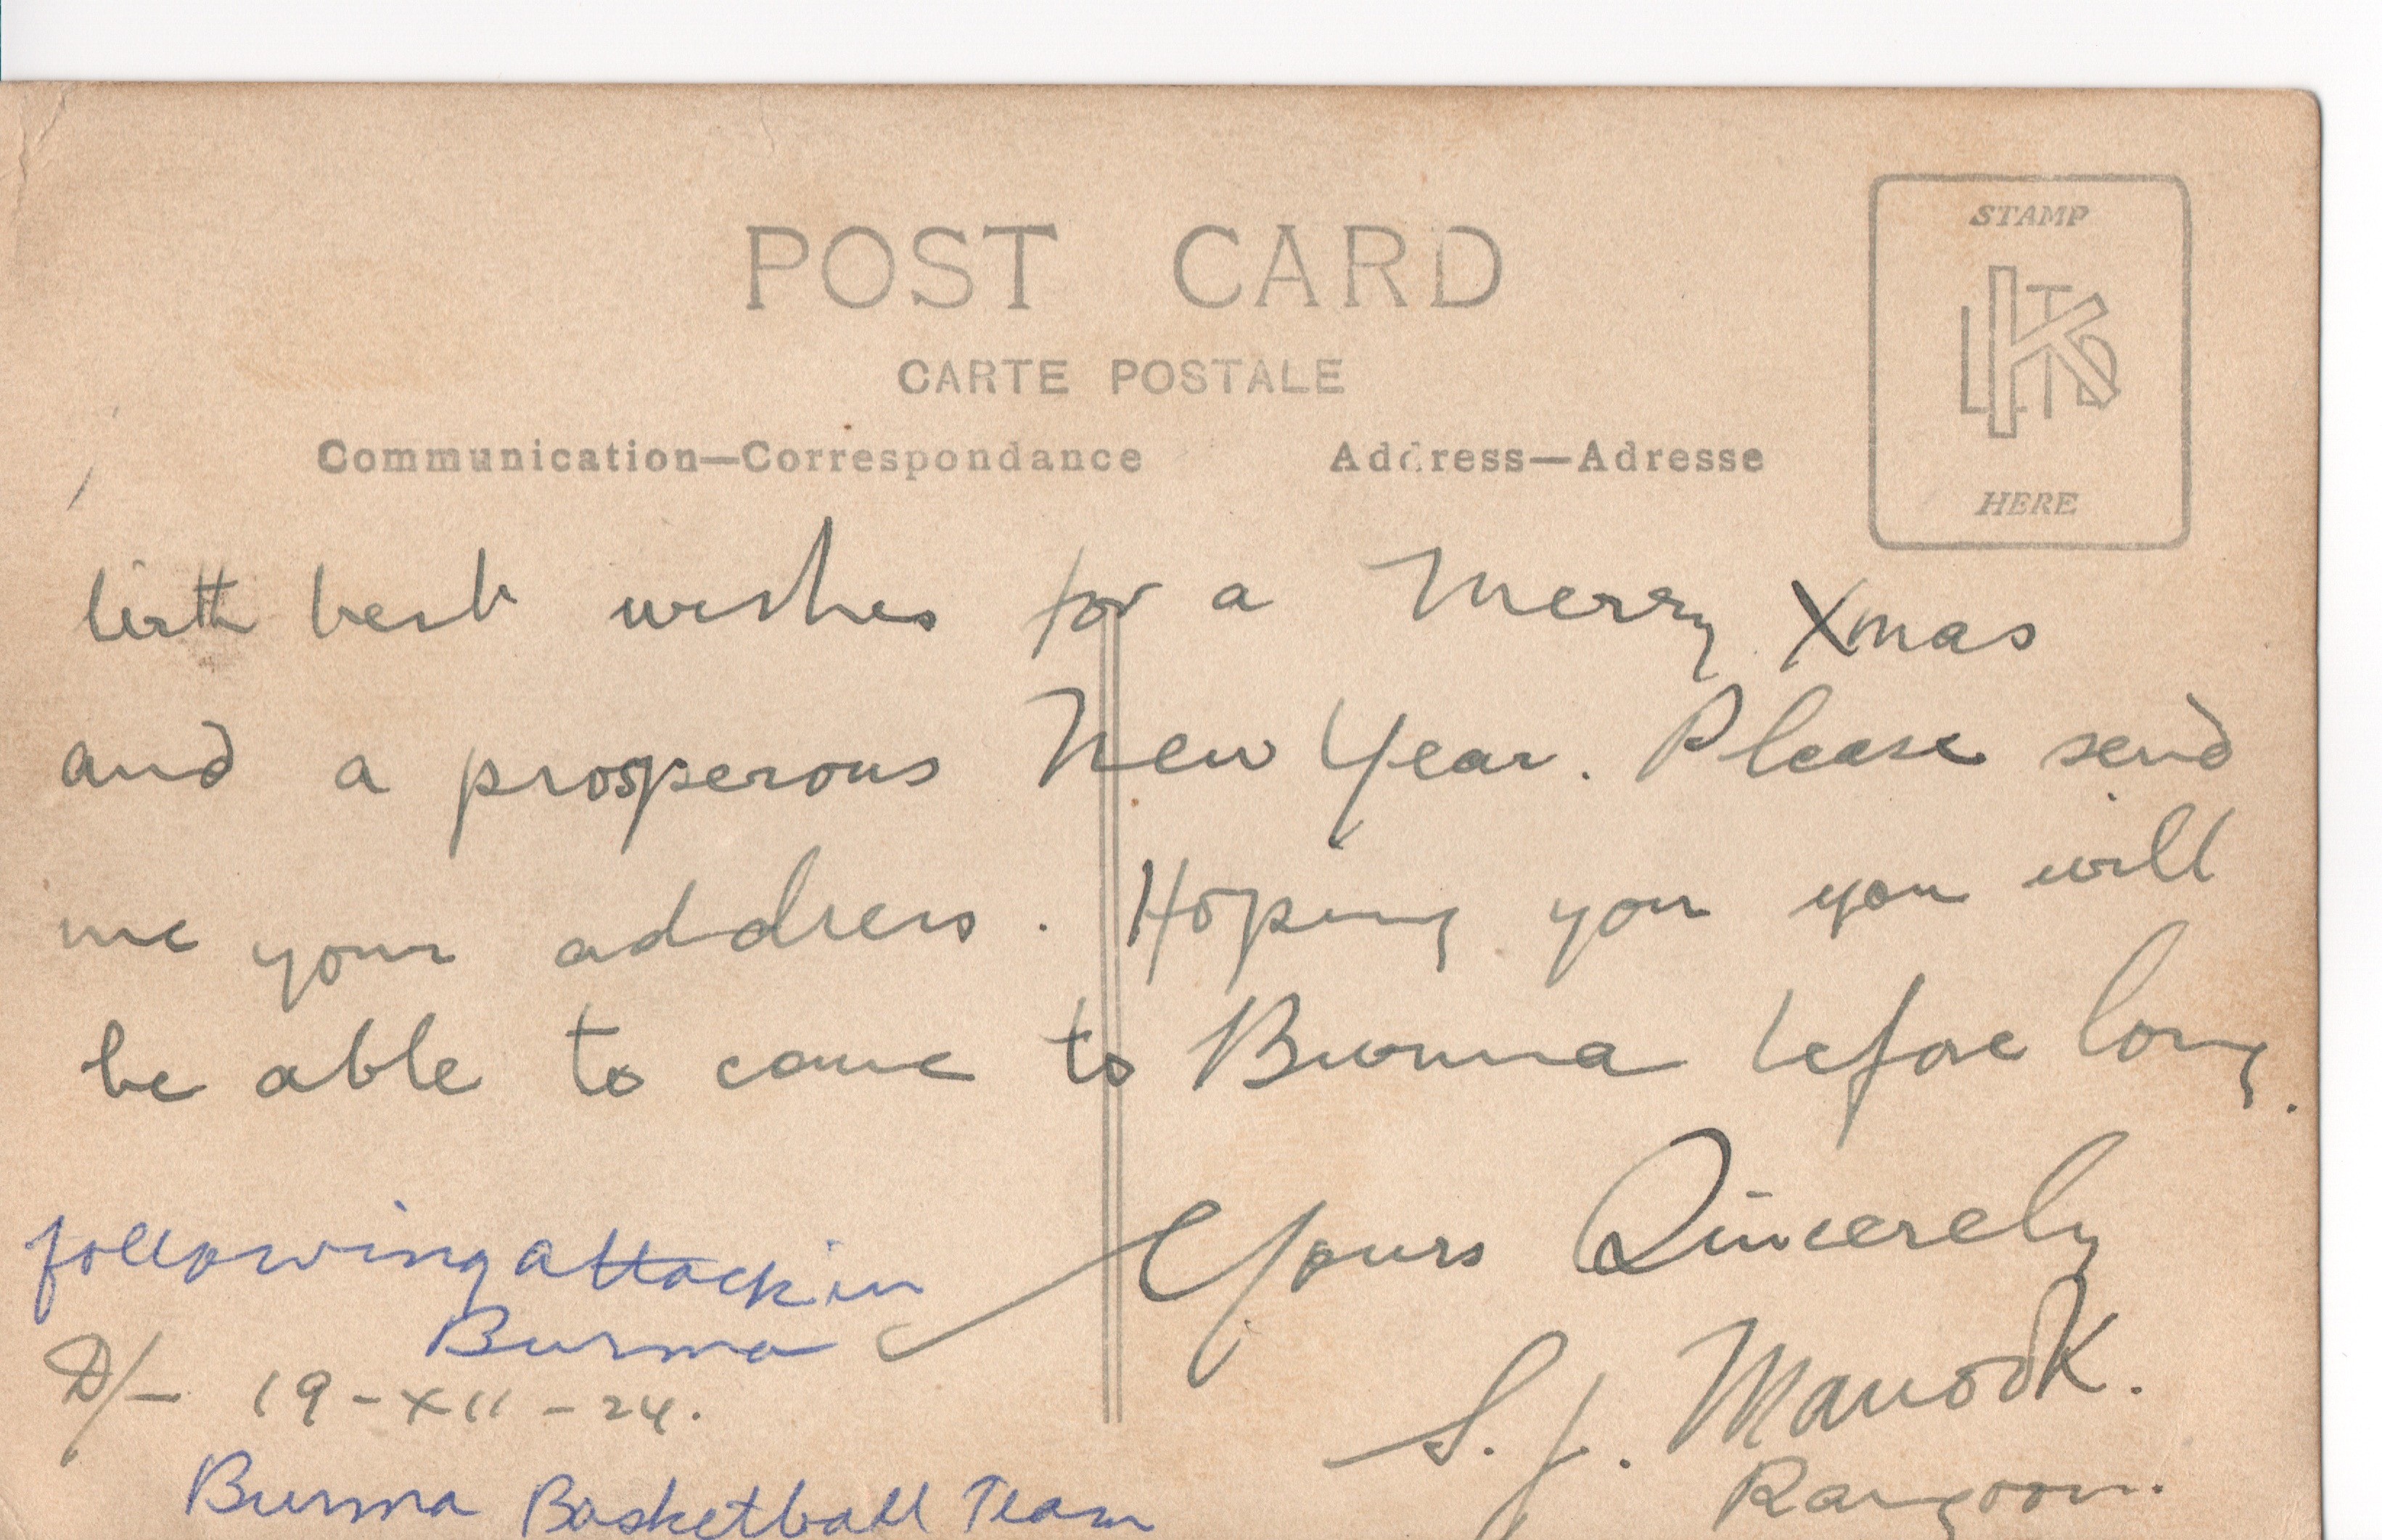 POST CARD
CARTE POSTALE
Communication—Correspondance
Address—Adresse
STAMP
KLTD
HERE
With best wishes for a Merry Xmas
and a prosperous New Year. Please send
me your address. Hoping you you will
be able to come to Burma before long.
Yours Sincerely
S. J. Manook.
Rangoon.
following attack in
Burma
D/- 19-XII-24.
Burma Basketball Team